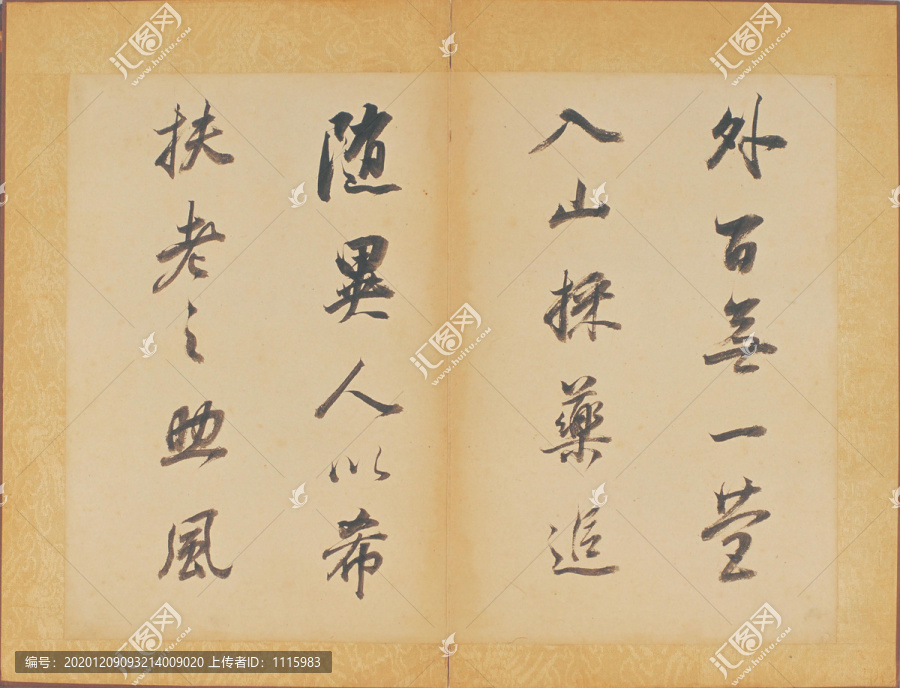 外百無一營
入山採藥追
随異人以希
扶老之助風
汇图网
www.huitu.com
编号：20201209093214009020 上传者ID：1115983